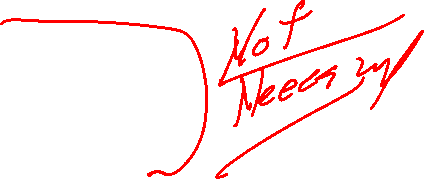 Not
Necessary